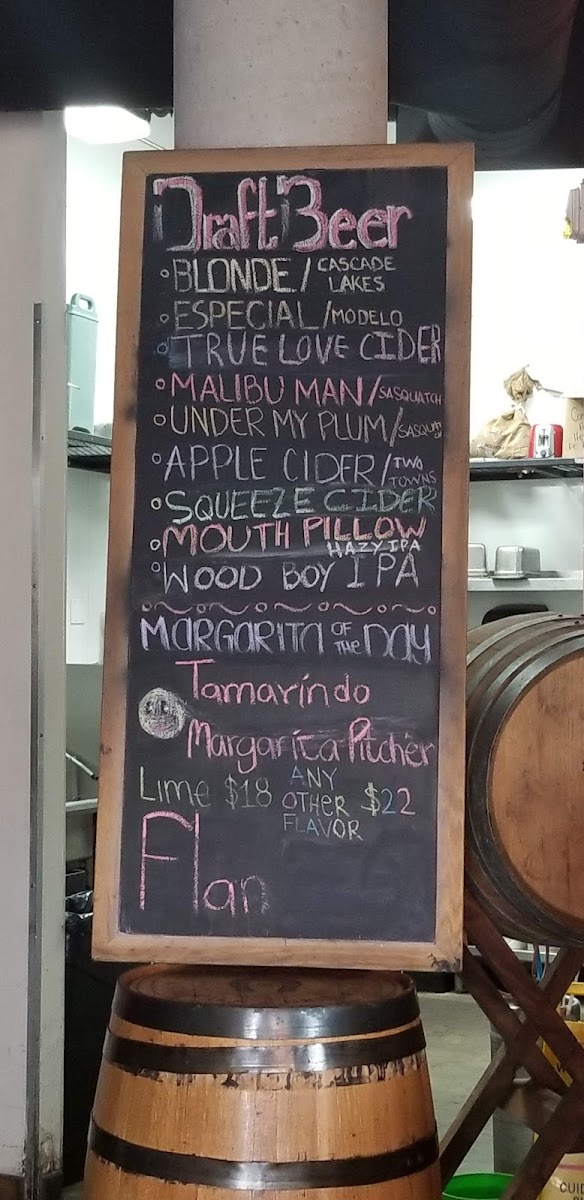 Draft Beer
BLONDE / CASCADE LAKES
ESPECIAL / MODELO
TRUE LOVE CIDER
MALIBU MAN / SASQUATCH
UNDER MY PLUM / SASQUA
APPLE CIDER / TWO TOWNS
SQUEEZE CIDER
MOUTH PILLOW
HAZY IPA
WOOD BOY IPA
MARGARITA OF THE DAY
Tamarindo
Margarita Pitcher
Lime $18 ANY OTHER FLAVOR $22
Flan